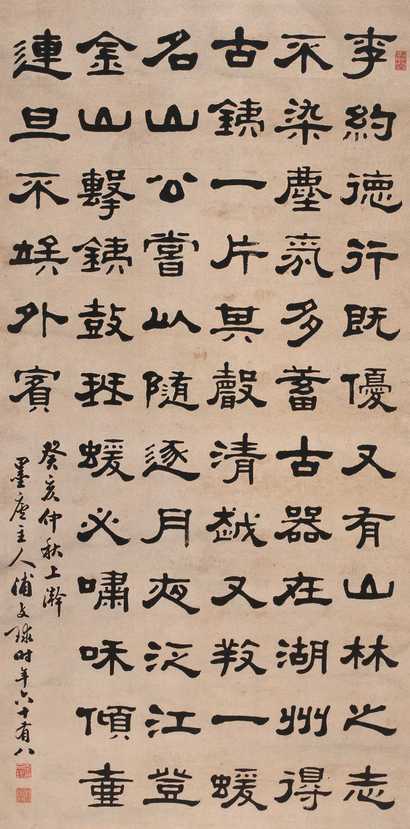 李約德行既優又有山林之志
不染塵氣多蓄古器在湖州得
古銕一片其聲清越又𢼝一蝯
名山公嘗以隨逐月夜泛江登
金山擊銕鼓珡蝯必嘯咊傾壷
連旦不竢外賓
癸亥仲秋上澣
墨廬主人浦文球時年六十有八